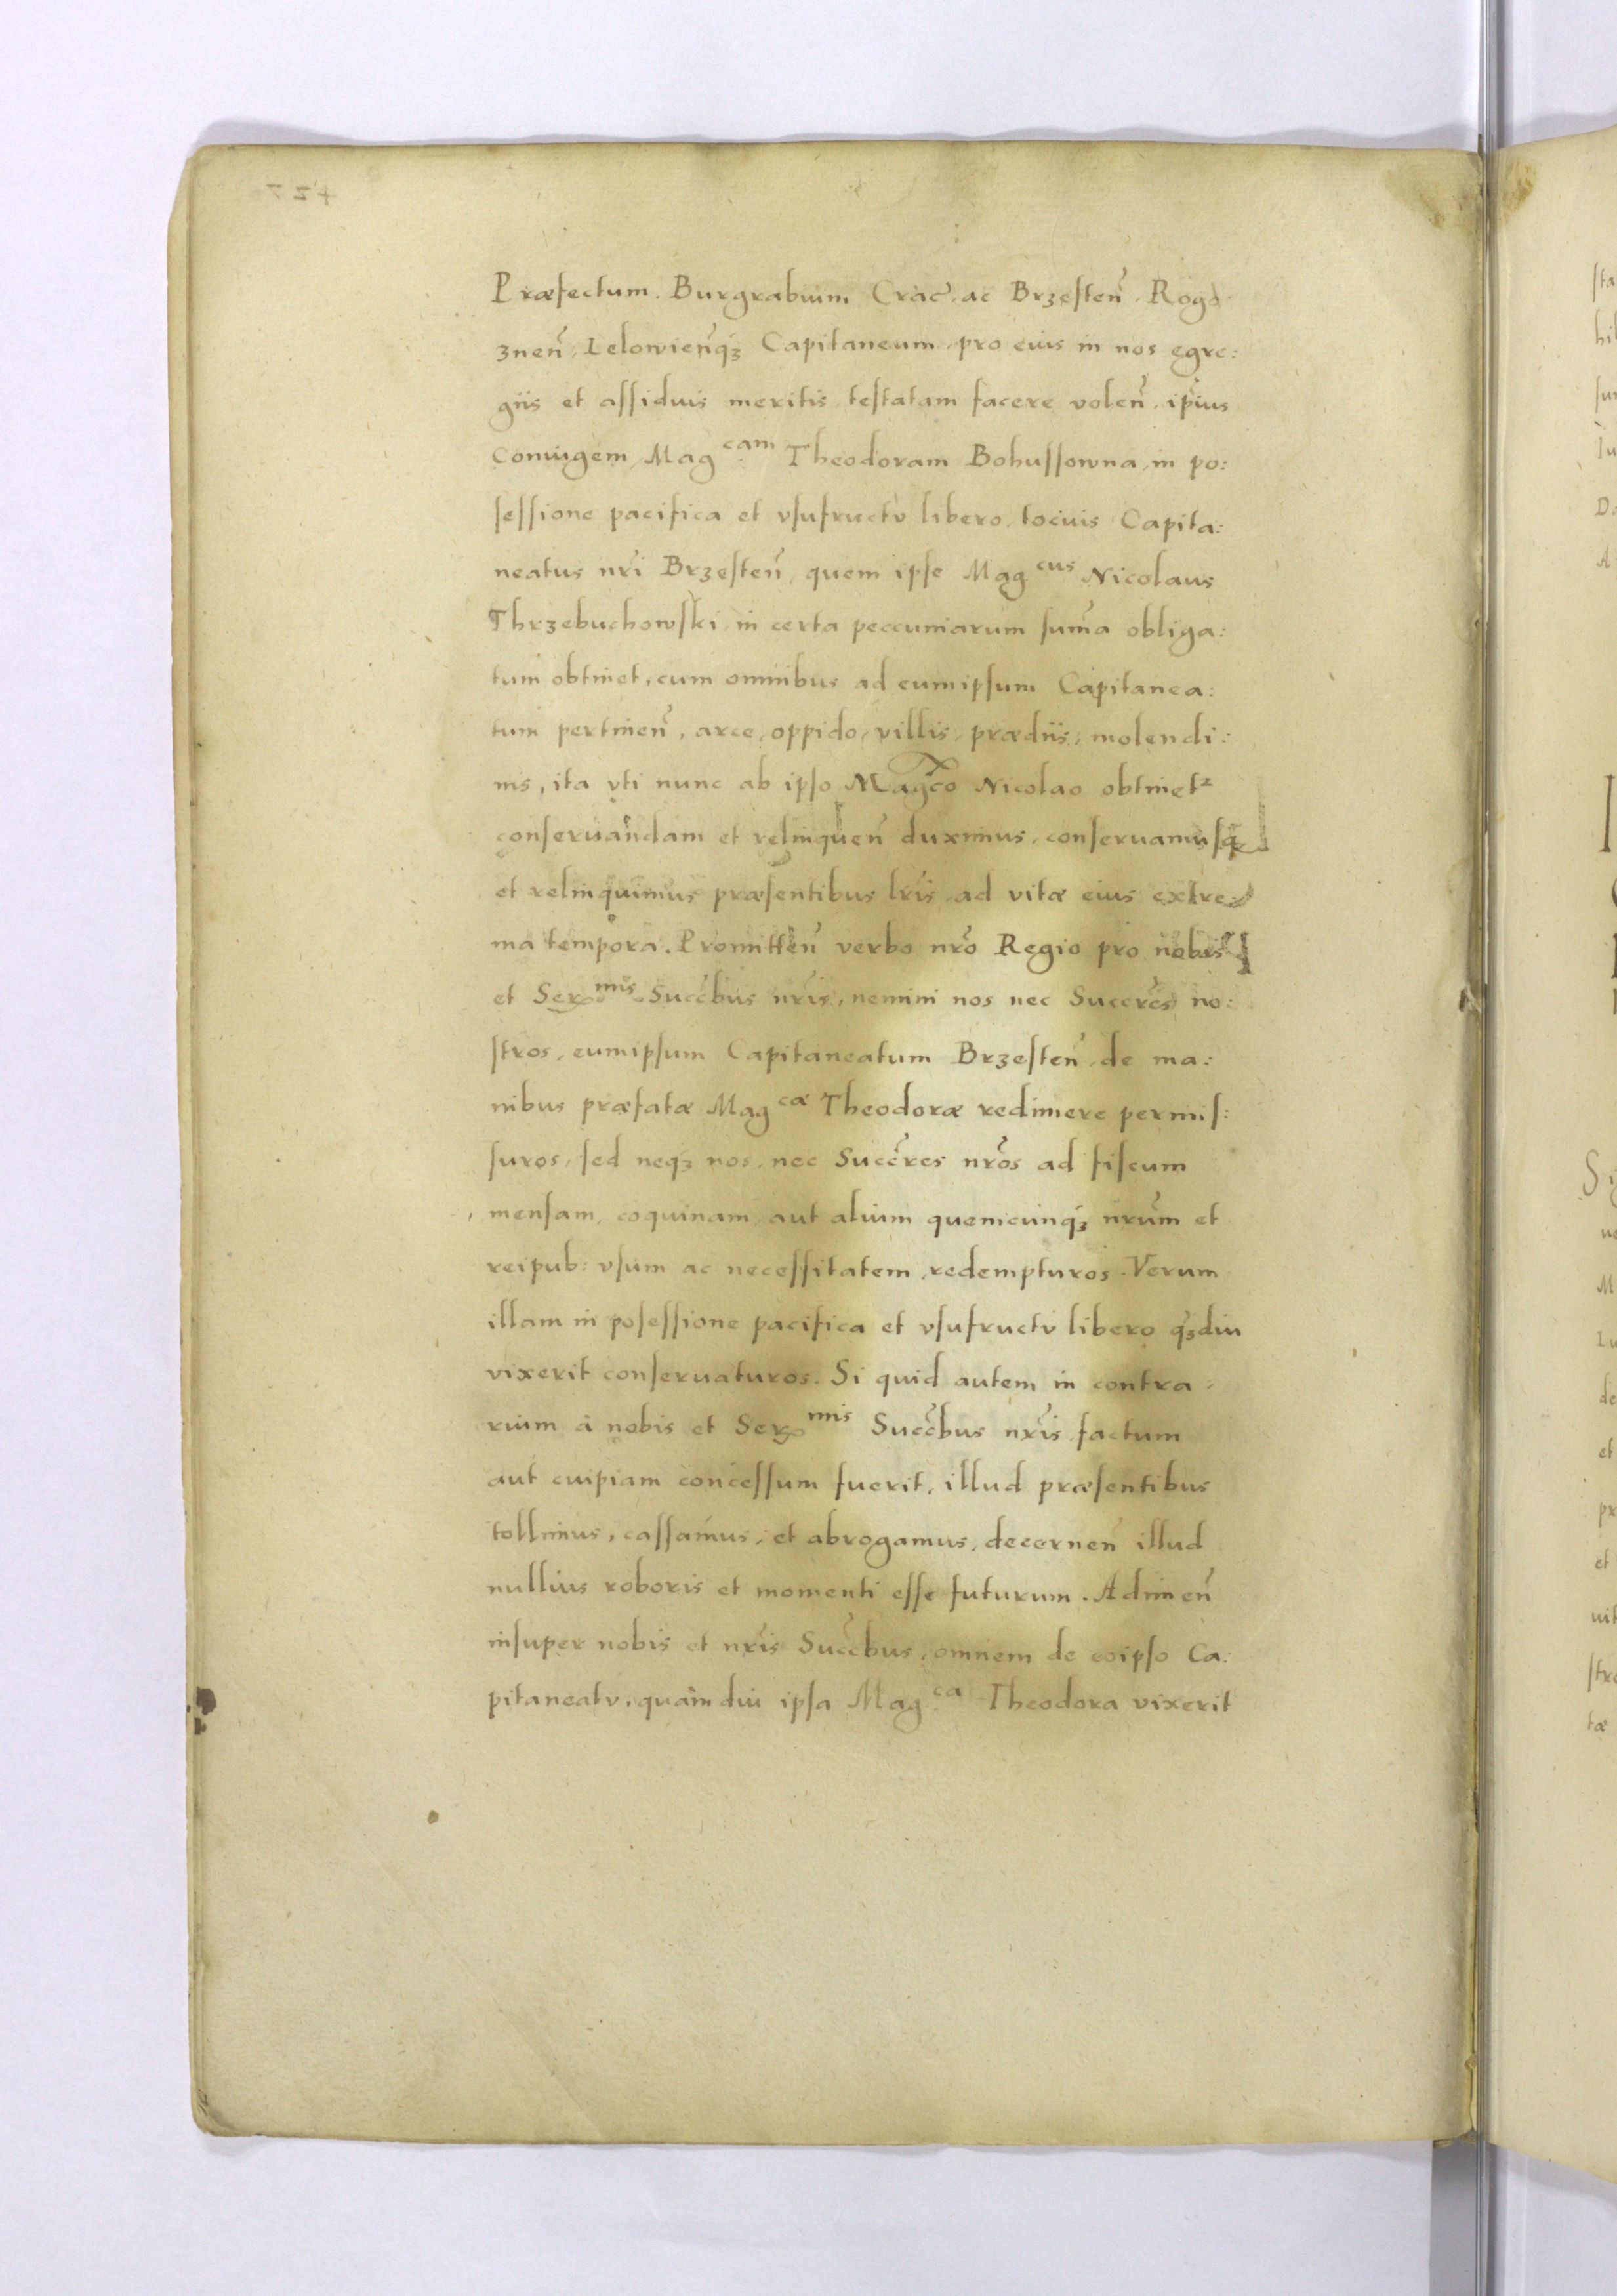 Præfectum. Burgrabium Crac̃. ac Brzesteñ. Roga
zneñ, Lelowieñqȝ Capitaneum, pro eius in nos egre:
giis et assiduis meritis, testatam facere voleñ, ip̃ius
Coniugem, Mag^cam Theodoram Bohussowna, in po:
sessione pacifica et vsufructv libero, tocius Capita:
neatus nr̃i Brzesteñ, quem ipse Mag^cus Nicolaus
Thrzebuchowski in certa peccuniarum sum̃a obliga:
tum obtinet, cum omnibus ad eumipsum Capitanea:
tum pertineñ, arce, oppido, villis, prædiis, molendi:
nis, ita vti nunc ab ipso Magc̃o Nicolao obtinet²
conseruandam et relinqueñ duximus, conseruamusqȝ
et relinquimus præsentibus lr̃is, ad vitæ eius extre:
ma tempora. Promitteñ verbo nr̃o Regio pro nobis
et Ser^mis Succ̃bus nr̃is, nemini nos nec Succr̃es no:
stros, eumipsum Capitaneatum Brzesteñ, de ma:
nibus præfatæ Mag^cæ Theodoræ redimere permis:
suros, sed neqȝ nos, nec Succr̃es nr̃os ad fiscum
mensam, coquinam, aut alium quemcunqȝ nr̃um et
reipub: vsum ac necessitatem, redempturos. Verum
illam in posessione pacifica et vsufructv libero qȝdiu
vixerit conseruaturos. Si quid autem in contra
rium à nobis et Ser^mis Succ̃bus nr̃is factum
aut cuipiam concessum fuerit, illud præsentibus
tollimus, cassamus, et abrogamus, decerneñ illud
nullius roboris et momenti esse futurum. Adimeñ
insuper nobis et nr̃is Succ̃bus, omnem de eoipso Ca:
pitaneatv, quàmdiu ipsa Mag^ca Theodora vixerit